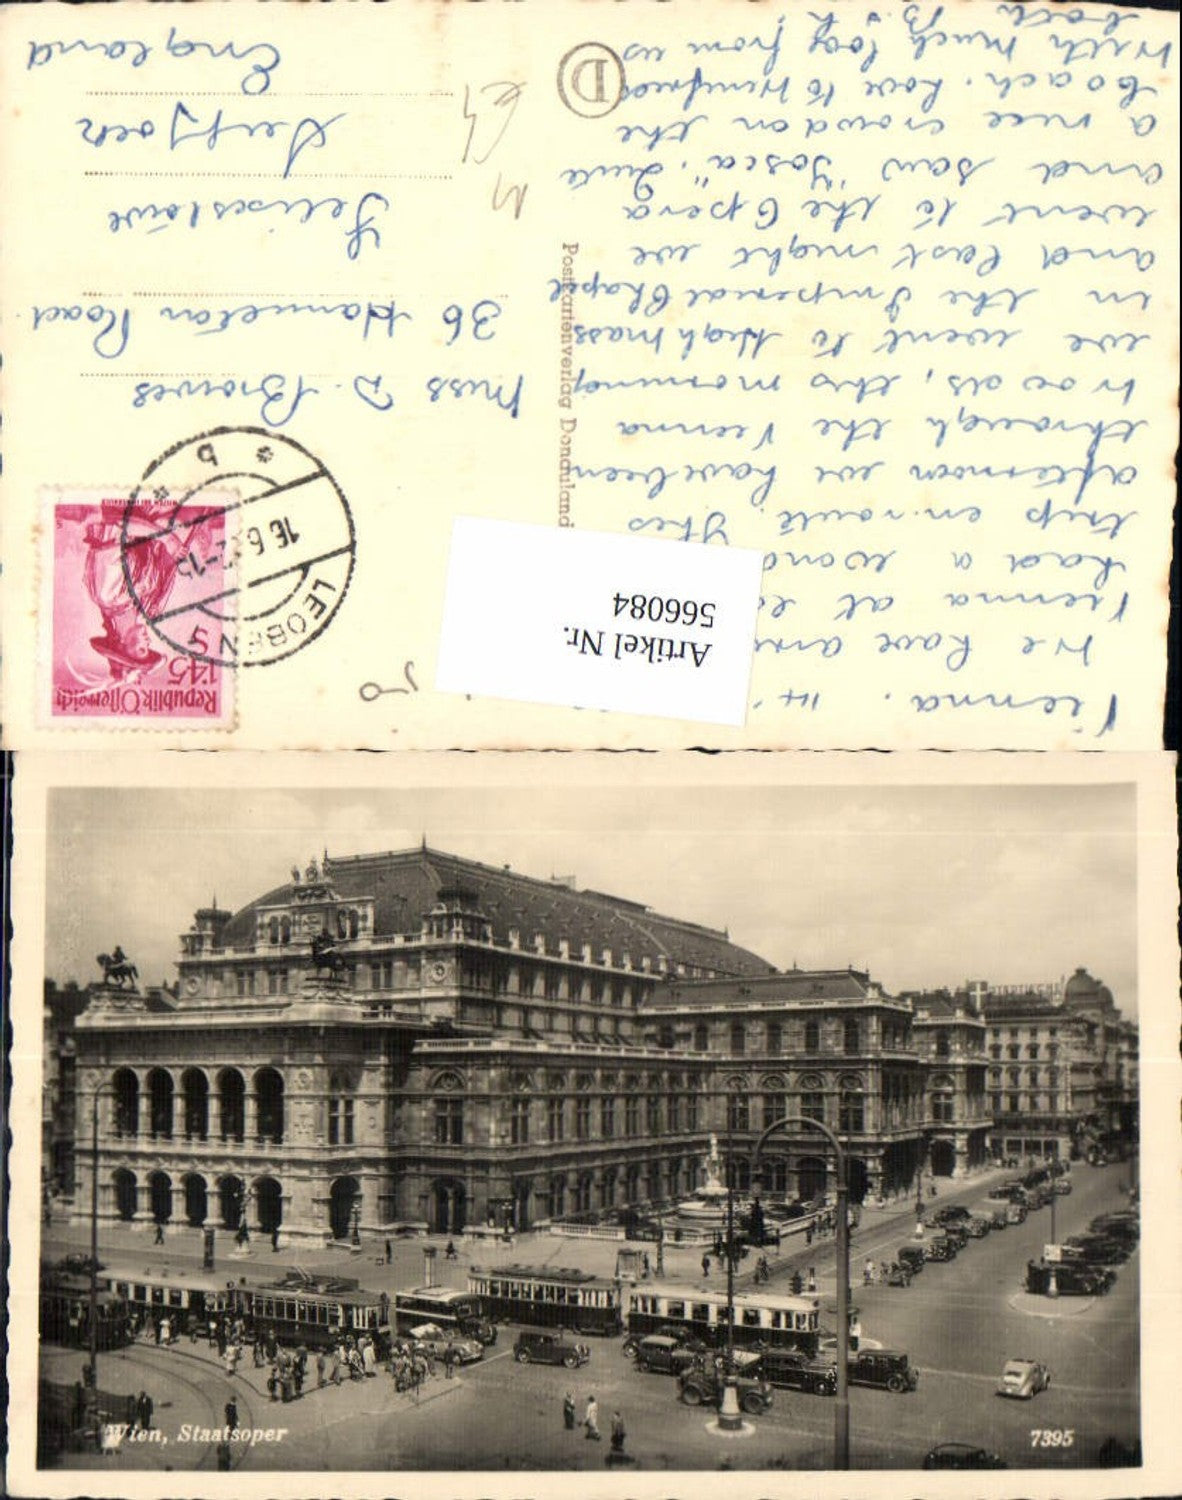 Vienna. 14.
We have
Vienna at
had a
trip en-route. This
afternoon we have been
through the Vienna
Woods, this morning
we went to High Mass
in the Imperial Chapel
and last night we
went to the Opera
and saw "Tosca". Quite
a nice crowd on the
coach. Love to Winifred
With much love from us
both
Postkartenverlag Donauland
D
Artikel Nr.
566084
Republik Österreich
1'45
LEOBEN 5
16.6.
* b *
Miss D. Browes
36 Hamelton Road
Felixstowe
Suffolk
England
Wien, Staatsoper
7395